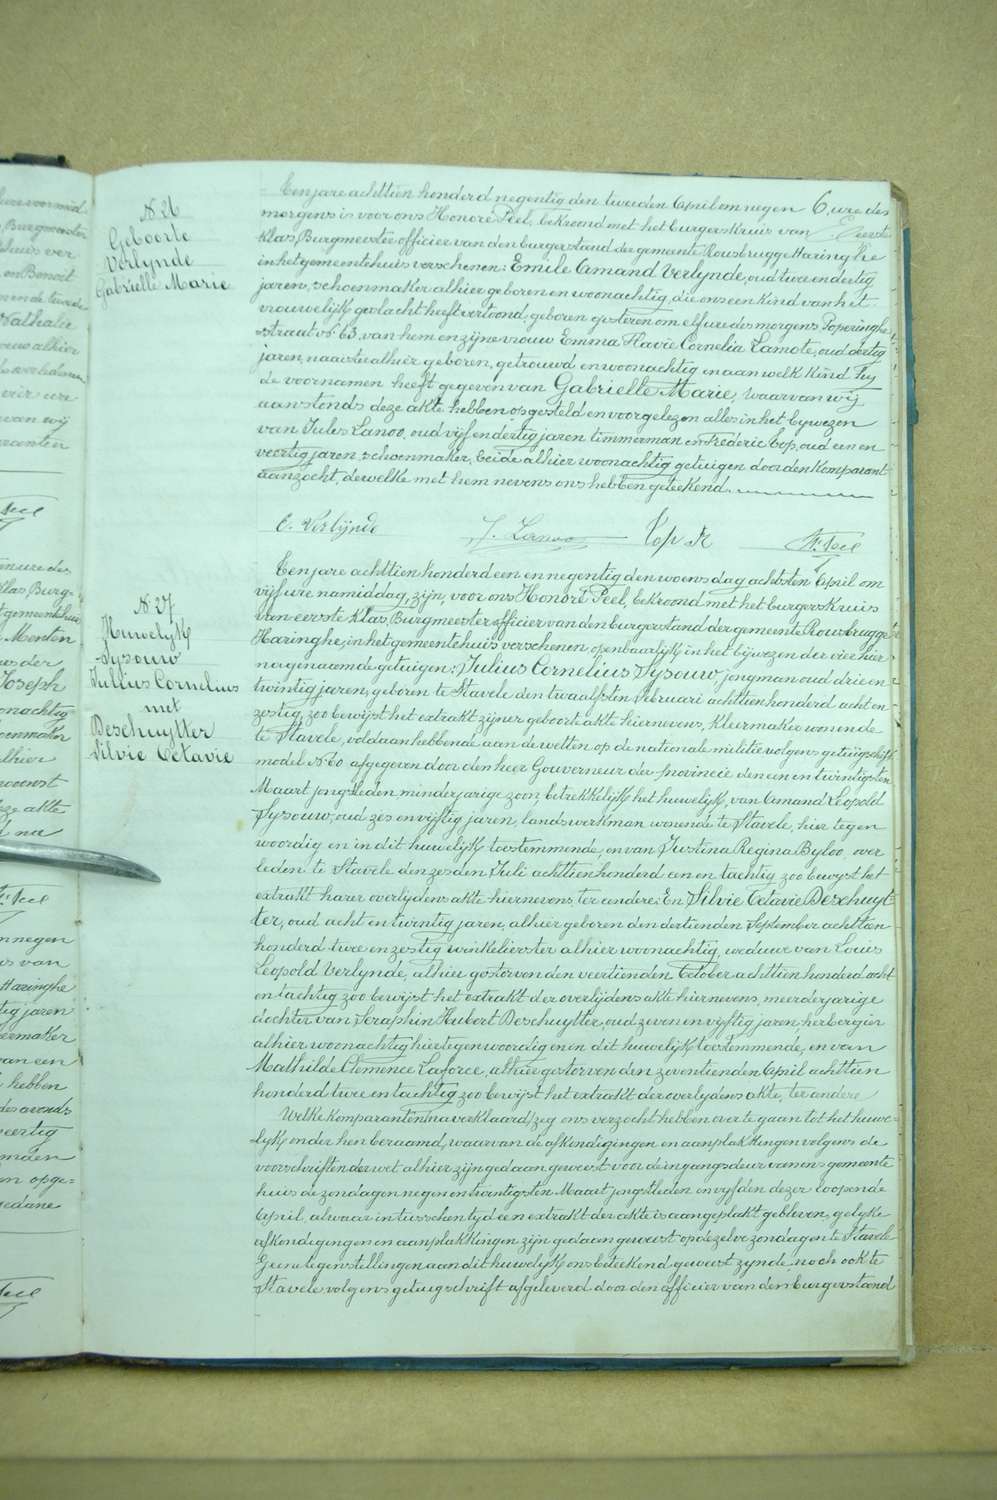 N 26
Geboorte
Verlynde
Gabrielle Marie
Ten jare achttien honderd negentig den tweeden April om negen ure des
morgens is voor ons Honoré Peel, bekroond met het burgerskruis van Eerste
Klas, Burgmeester officier van den burgerstand der gemeente Rousbrugge Haringhe
in het gemeentehuis verschenen: Emile Amand Verlynde, oud twee en dertig
jaren, schoenmaker alhier geboren en woonachtig, die ons een kind van het
vrouwelijk geslacht heeft vertoond, geboren gisteren om elf ure des morgens Poperinghe
straat n° 63, van hem en zijne vrouw Emma Flavie Cornelia Lamote, oud dertig
jaren, naaister alhier geboren, getrouwd en woonachtig en aan welk kind hy
de voornamen heeft gegeven van Gabrielle Marie, waarvan wij
aanstonds deze akte hebben opgesteld en voorgelezen alles in het bywezen
van Jules Lanoo, oud vijf en dertig jaren timmerman en Frederic Cop, oud een en
veertig jaren, schoenmaker, beide alhier woonachtig getuigen door den komparant
aanzocht, dewelke met hem nevens ons hebben geteekend.
E. Verlijnde J. Lanoo Cop FR H. Peel
N 27
Huwelijk
Sysouw
Julius Cornelius
met
Deschuytter
Silvie Octavie
Ten jare achttien honderd een en negentig den woensdag achtsten April om
vijf ure namiddag, zijn, voor ons Honoré Peel, bekroond met het burgerskruis
van eerste klas, Burgmeester officier van den burgerstand der gemeente Rousbrugge
Haringhe, in het gemeentehuis verschenen openbaarlijk in het bijwezen der vier hier
nagenaemde getuigen: Julius Cornelius Sysouw jongman oud drie en
twintig jaren, geboren te Stavele den twaalfsten Februari achttien honderd acht en
zestig, zoo bewijst het extrakt zijner geboorteakte hiernevens, kleermaker wonende
te Stavele, voldaan hebbende aan de wetten op de nationale militie volgens getuigschrift
model N 60 afgegeven door den heer Gouverneur der provincie den een en twintigsten
Maart jongstleden minderjarige zoon, betrekkelijk het huwelijk, van Amand Leopold
Sysouw, oud zes en vijftig jaren, landswerkman wonende te Stavele, hier tegen
woordig en in dit huwelijk toestemmende, en van Justina Regina Byloo, over
leden te Stavele den zesden Juli achttien honderd een en tachtig zoo bewijst het
extrakt harer overlijdens akte hiernevens, ter eendere: En Silvie Octavie Deschuyt-
ter, oud acht en twintig jaren, alhier geboren den dertienden September achttien
honderd twee en zestig winkelierster alhier woonachtig, weduwe van Louis
Leopold Verlynde, alhier gestorven den veertienden October achttien honderd acht
en tachtig zoo bewijst het extrakt der overlijdens akte hiernevens, meerderjarige
dochter van Seraphin Hubert Deschuytter, oud zeven en vijftig jaren herbergier
alhier woonachtig hier tegenwoordig en in dit huwelijk toestemmende, en van
Mathilde Clemence Laforce, alhier gestorven den zeventienden April achttien
honderd twee en tachtig zoo bewijst het extrakt der overlydens akte, ter andere
Welke komparanten na verklaard zeg ons verzocht hebben over te gaan tot het huwe-
lijk onder hen beraamd, waarvan de afkondigingen en aanplakkingen volgens de
voorschriften der wet alhier zijn gedaan geweest voor de ingangsdeur van ons gemeente
huis de zondagen negen en twintigsten Maart jongstleden en vyfden dezer loopende
April, alwaar in tusschen tyd een extrakt der akte is aangeplakt gebleven, gelyke
afkondigingen en aanplakkingen zijn gedaan geweest op dezelve zondagen te Stavele
Geene tegenstellingen aan dit huwelyk ons beteekend geweest zynde, noch ook te
Stavele volgens getuigschrift afgeleverd door den officier van den burgerstand